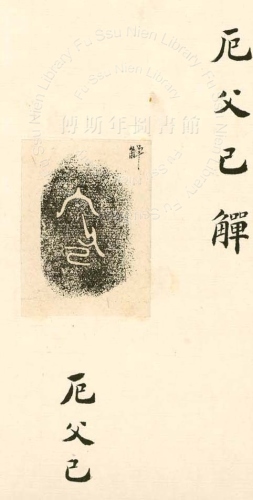 厄父己觶
觶
厄父己
傅斯年圖書館
Fu Ssu Nien Library